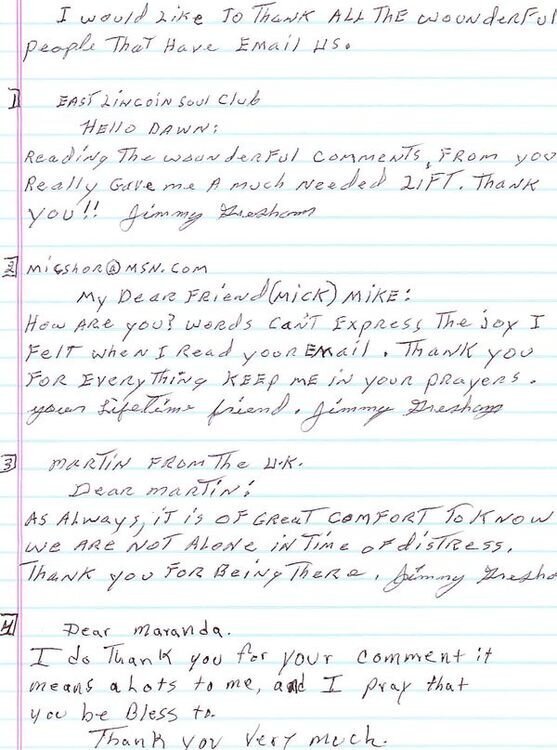 I would Like To Thank All The wounderful
people That Have Email us.
1 East Lincoln Soul Club
Hello Dawn:
Reading The wounderful comments, From you
Really Gave me A much needed Lift. Thank
you!! Jimmy Gresham
2 micshor@msn.com
My Dear Friend (Mick) Mike:
How Are you? words can't Express The joy I
Felt when I Read your Email. Thank you
For Everything Keep me in your prayers.
your Lifetime friend. Jimmy Gresham
3 Martin From The U.K.
Dear martin:
As Always, it is of Great comfort To Know
we Are not Alone in Time of distress.
Thank you For Being There. Jimmy Gresha
4 Dear Maranda.
I do Thank you for your comment it
means a Lots to me, and I pray that
you be Bless to.
Thank you Very much.